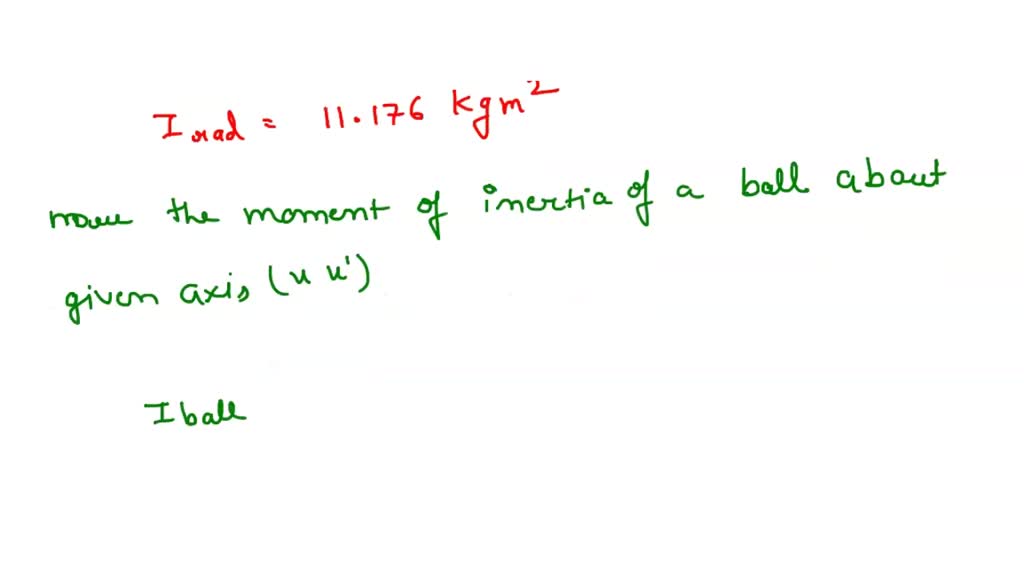 I rad = 11.176 kgm²
now the moment of inertia of a ball about
given axis (u u')
I ball